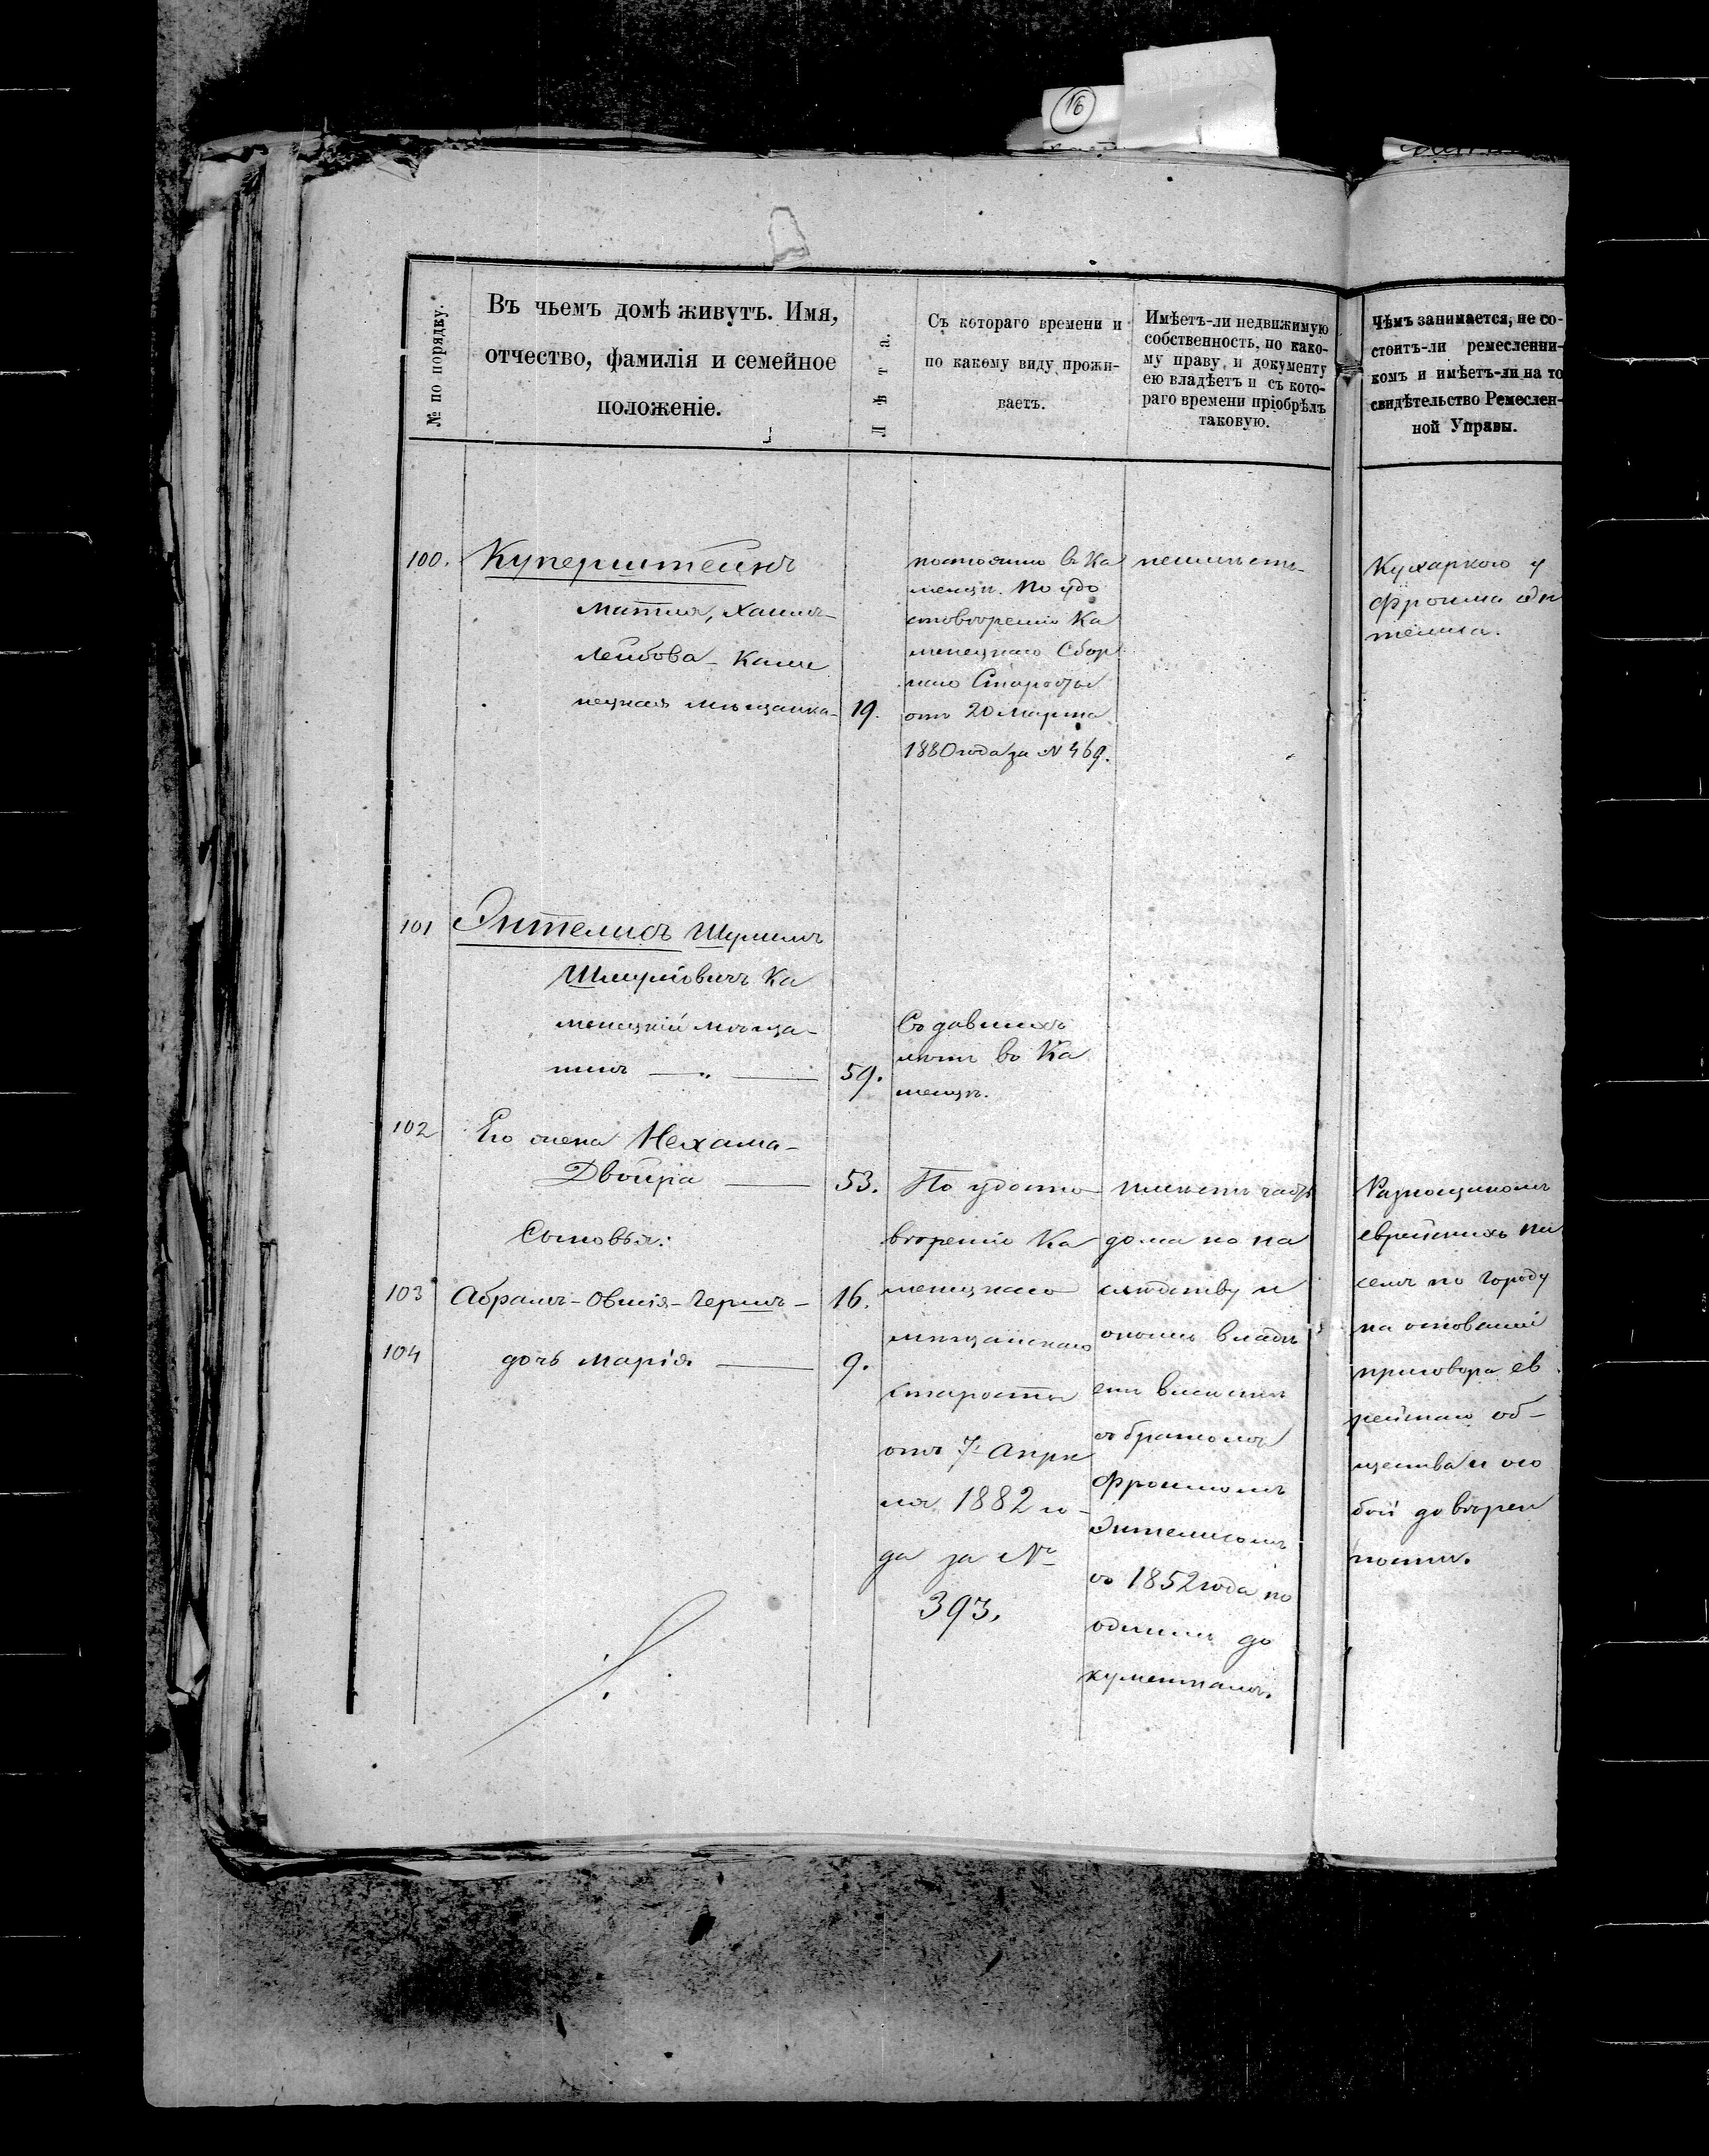 16
№ по порядку.
Въ чьемъ домѣ живутъ. Имя,
отчество, фамилія и семейное
положеніе.
Лѣта.
Съ котораго времени и
по какому виду прожи-
ваетъ.
Имѣетъ-ли недвижимую
собственность, по како-
му праву, и документу
ею владѣетъ и съ кото-
раго времени пріобрѣлъ
таковую.
Чѣмъ занимается, не со-
стоитъ-ли ремесленни-
комъ и имѣетъ-ли на то
свидѣтельство Ремеслен-
ной Управы.
100. Куперштейнъ
Матля, Хаимъ-
Лейбова - Каме
нецкая мѣщанка - 19.
постоянно въ Ка
менцѣ. По удо
стовѣренію Ка
менецкаго Сбор
наго Старосты
отъ 20 Марта
1880 года за № 469.
неимѣетъ
Кухаркою у
Фроима Эн
телиса.
101 Энтелисъ Шмуль
Шмулiовичъ Ка
менецкій мѣща-
нинъ — „ — 59.
Съ давнихъ
лѣтъ въ Ка
менцѣ.
102 Его жена Нехама-
Двойра — 53.
Сыновья:
103 Абрамъ-Овшія-Гершъ - 16.
104 дочь Марія — 9.
По удосто
вѣренію Ка
менецкаго
мѣщанскаго
старосты
отъ 7 Апрѣ
ля 1882 го-
да за №
393.
имѣетъ часть
дома по на
слѣдству и
онымъ владѣ
етъ вмѣстѣ
съ братомъ
Фроимомъ
Энтелисомъ
съ 1852 года по
даннымъ до
кументамъ.
Разнощикомъ
еврейскихъ пи
семъ по городу
на основаніи
приговора ев
рейскаго об-
щества и осо
бой довѣрен
ности.